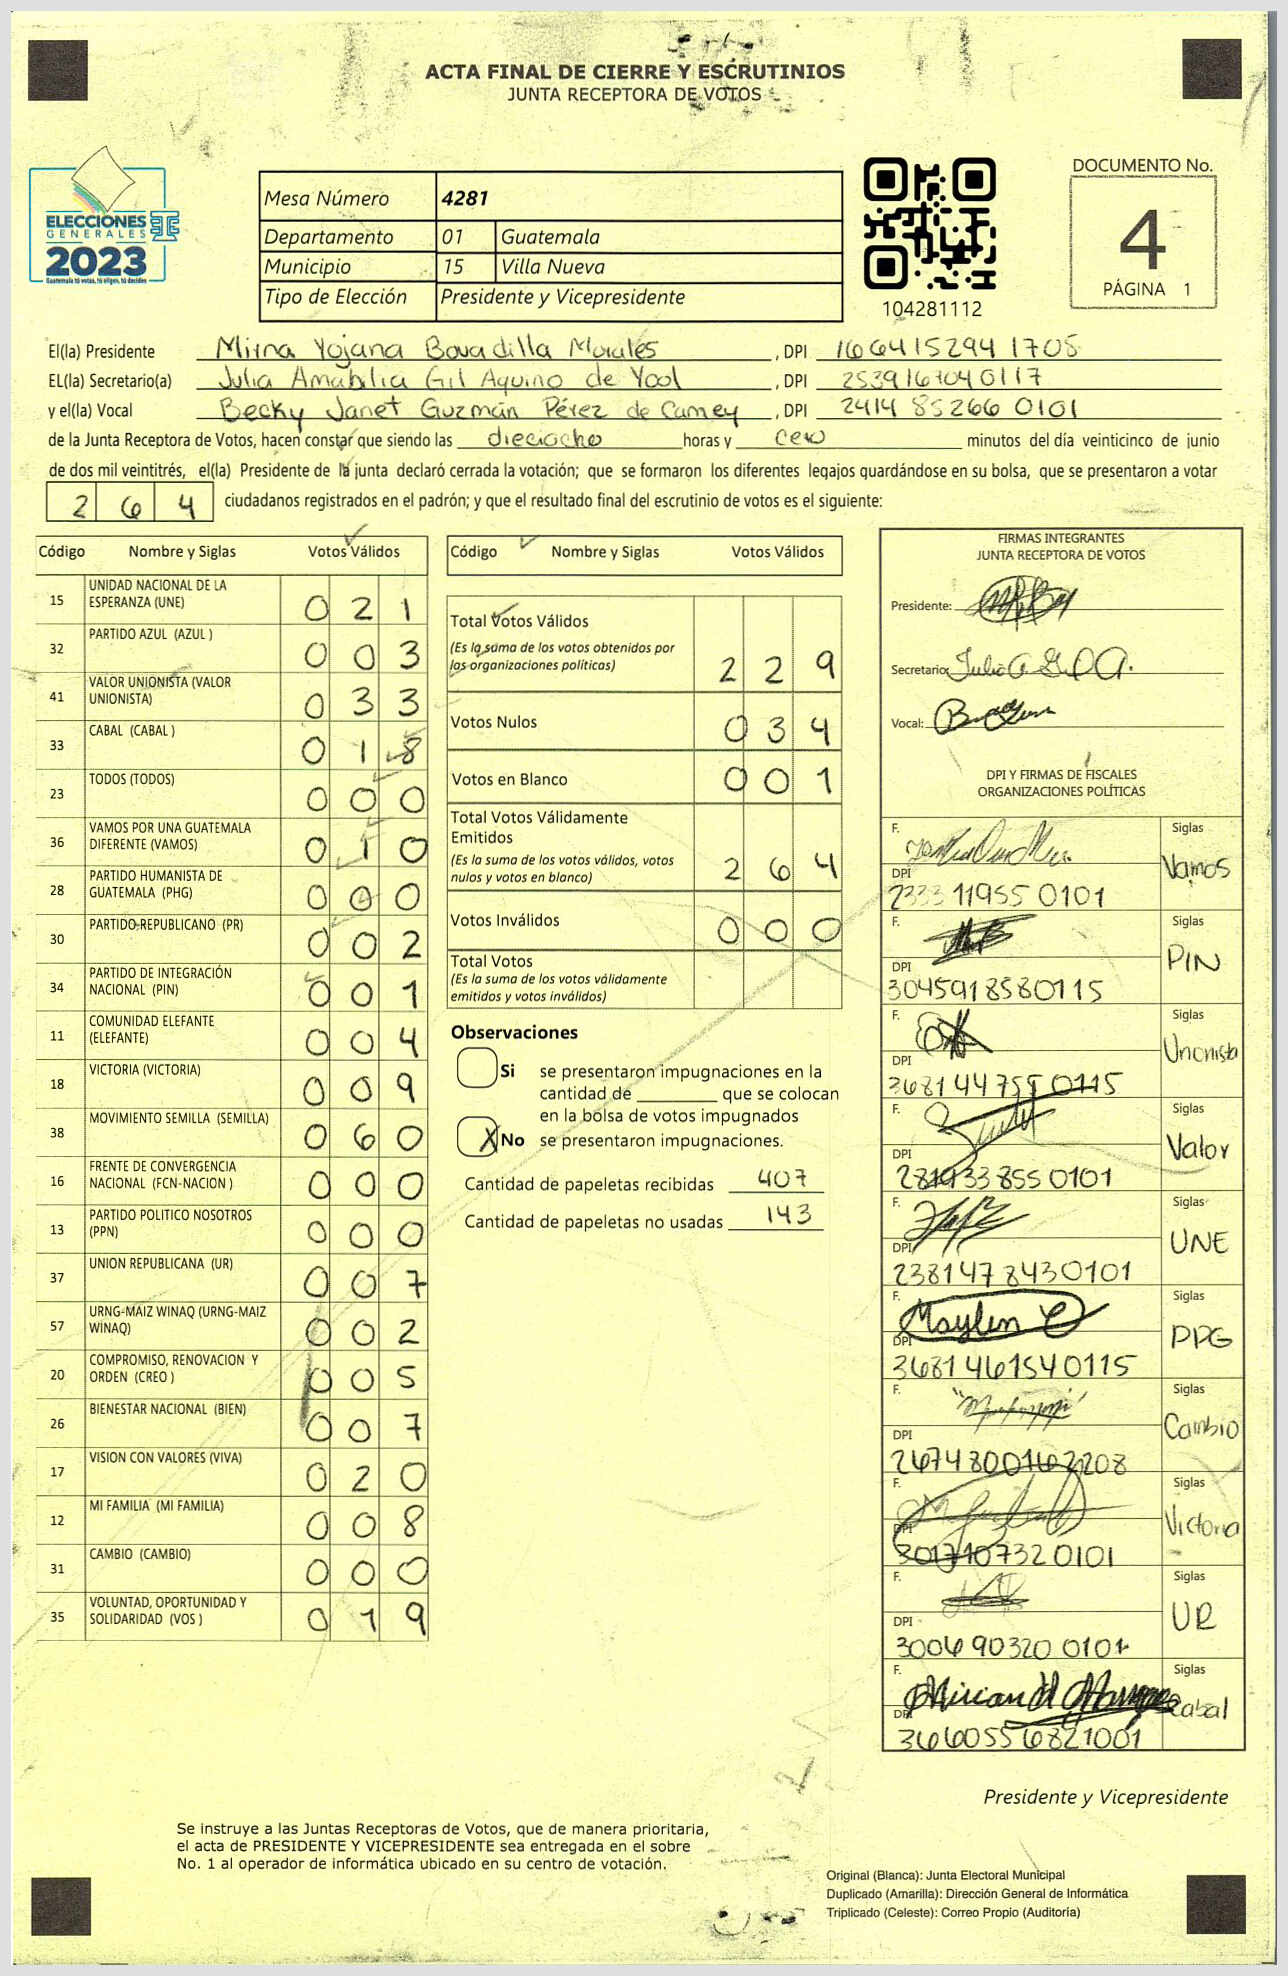 ACTA FINAL DE CIERRE Y ESCRUTINIOS
JUNTA RECEPTORA DE VOTOS
ELECCIONES
GENERALES
2023
Guatemala tú votas, tú eliges, tú decides
Mesa Número 4281
Departamento 01 Guatemala
Municipio 15 Villa Nueva
Tipo de Elección Presidente y Vicepresidente
104281112
DOCUMENTO No.
4
PÁGINA 1
El(la) Presidente Mirna Yojana Bovadilla Morales , DPI 1664152941705
EL(la) Secretario(a) Julia Amabilia Gil Aquino de Yool , DPI 2539167040117
y el(la) Vocal Becky Janet Guzmán Pérez de Camey , DPI 2414 85266 0101
de la Junta Receptora de Votos, hacen constar que siendo las dieciocho horas y cero minutos del día veinticinco de junio
de dos mil veintitrés, el(la) Presidente de la junta declaró cerrada la votación; que se formaron los diferentes legajos guardándose en su bolsa, que se presentaron a votar
2 6 4 ciudadanos registrados en el padrón; y que el resultado final del escrutinio de votos es el siguiente:
Código Nombre y Siglas Votos Válidos
15 UNIDAD NACIONAL DE LA
ESPERANZA (UNE) 0 2 1
32 PARTIDO AZUL (AZUL ) 0 0 3
41 VALOR UNIONISTA (VALOR
UNIONISTA) 0 3 3
33 CABAL (CABAL ) 0 1 8
23 TODOS (TODOS) 0 0 0
36 VAMOS POR UNA GUATEMALA
DIFERENTE (VAMOS) 0 1 0
28 PARTIDO HUMANISTA DE
GUATEMALA (PHG) 0 0 0
30 PARTIDO REPUBLICANO (PR) 0 0 2
34 PARTIDO DE INTEGRACIÓN
NACIONAL (PIN) 0 0 1
11 COMUNIDAD ELEFANTE
(ELEFANTE) 0 0 4
18 VICTORIA (VICTORIA) 0 0 9
38 MOVIMIENTO SEMILLA (SEMILLA) 0 6 0
16 FRENTE DE CONVERGENCIA
NACIONAL (FCN-NACION ) 0 0 0
13 PARTIDO POLITICO NOSOTROS
(PPN) 0 0 0
37 UNION REPUBLICANA (UR) 0 0 7
57 URNG-MAIZ WINAQ (URNG-MAIZ
WINAQ) 0 0 2
20 COMPROMISO, RENOVACION Y
ORDEN (CREO ) 0 0 5
26 BIENESTAR NACIONAL (BIEN) 0 0 7
17 VISION CON VALORES (VIVA) 0 2 0
12 MI FAMILIA (MI FAMILIA) 0 0 8
31 CAMBIO (CAMBIO) 0 0 0
35 VOLUNTAD, OPORTUNIDAD Y
SOLIDARIDAD (VOS ) 0 1 9
Código Nombre y Siglas Votos Válidos
Total Votos Válidos
(Es la suma de los votos obtenidos por
las organizaciones políticas) 2 2 9
Votos Nulos 0 3 4
Votos en Blanco 0 0 1
Total Votos Válidamente
Emitidos
(Es la suma de los votos válidos, votos
nulos y votos en blanco) 2 6 4
Votos Inválidos 0 0 0
Total Votos
(Es la suma de los votos válidamente
emitidos y votos inválidos)
Observaciones
Si se presentaron impugnaciones en la
cantidad de ________ que se colocan
en la bolsa de votos impugnados
X No se presentaron impugnaciones.
Cantidad de papeletas recibidas 407
Cantidad de papeletas no usadas 143
FIRMAS INTEGRANTES
JUNTA RECEPTORA DE VOTOS
Presidente:
Secretario:
Vocal:
DPI Y FIRMAS DE FISCALES
ORGANIZACIONES POLÍTICAS
F. Siglas
Vamos
DPI
2333 11955 0101
F. Siglas
PIN
DPI
3045918580115
F. Siglas
Unionista
DPI
3681447550115
F. Siglas
Valor
DPI
281933855 0101
F. Siglas
UNE
DPI
2381478430101
F. Siglas
Maylen
PPG
DPI
3681461540115
F. Siglas
Cambio
DPI
2674800162208
F. Siglas
Victoria
DPI
3017107320101
F. Siglas
UR
DPI
300690320 0101
F. Siglas
Cabal
DPI
3660556821001
Presidente y Vicepresidente
Se instruye a las Juntas Receptoras de Votos, que de manera prioritaria,
el acta de PRESIDENTE Y VICEPRESIDENTE sea entregada en el sobre
No. 1 al operador de informática ubicado en su centro de votación.
Original (Blanca): Junta Electoral Municipal
Duplicado (Amarilla): Dirección General de Informática
Triplicado (Celeste): Correo Propio (Auditoría)